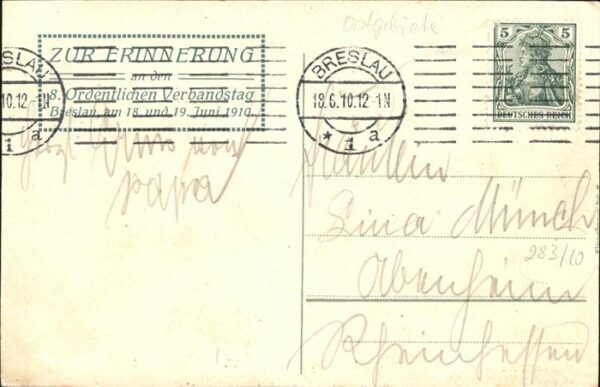 Ostgebiete
ZUR ERINNERUNG
an den
8. Ordentlichen Verbandstag
Breslau, am 18. und 19. Juni 1910.
SLAU
10.12-1N
1 a
BRESLAU
18.6.10.12-1N
* 1 a
5 5
DEUTSCHES REICH
Gruss von
Papa
Fräulein
Lina Münch
283/10
Abenheim
Rheinhessen